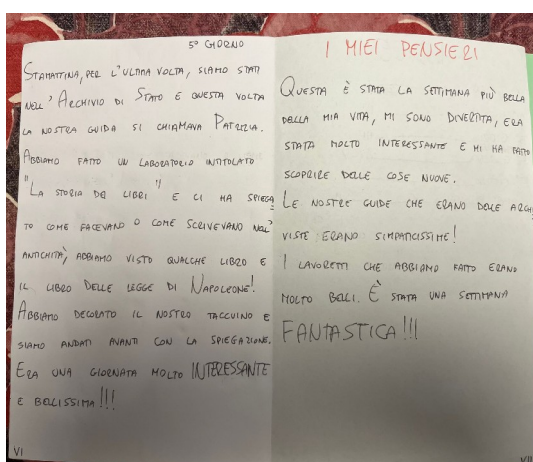 5° GIORNO
STAMATTINA, PER L'ULTIMA VOLTA, SIAMO STATI
NELL'ARCHIVIO DI STATO E QUESTA VOLTA
LA NOSTRA GUIDA SI CHIAMAVA PATRIZIA.
ABBIAMO FATTO UN LABORATORIO INTITOLATO
"LA STORIA DEI LIBRI" E CI HA SPIEGA
TO COME FACEVANO O COME SCRIVEVANO NELL'
ANTICHITÀ, ABBIAMO VISTO QUALCHE LIBRO E
IL LIBRO DELLE LEGGE DI NAPOLEONE!
ABBIAMO DECORATO IL NOSTRO TACCUINO E
SIAMO ANDATI AVANTI CON LA SPIEGAZIONE.
ERA UNA GIORNATA MOLTO INTERESSANTE
E BELLISSIMA!!!
VI
I MIEI PENSIERI
QUESTA È STATA LA SETTIMANA PIÙ BELLA
DELLA MIA VITA, MI SONO DIVERTITA, ERA
STATA MOLTO INTERESSANTE E MI HA FATTO
SCOPRIRE DELLE COSE NUOVE.
LE NOSTRE GUIDE CHE ERANO DELLE ARCHI
VISTE ERANO SIMPATICISSIME!
I LAVORETTI CHE ABBIAMO FATTO ERANO
MOLTO BELLI. È STATA UNA SETTIMANA
FANTASTICA!!!
VII